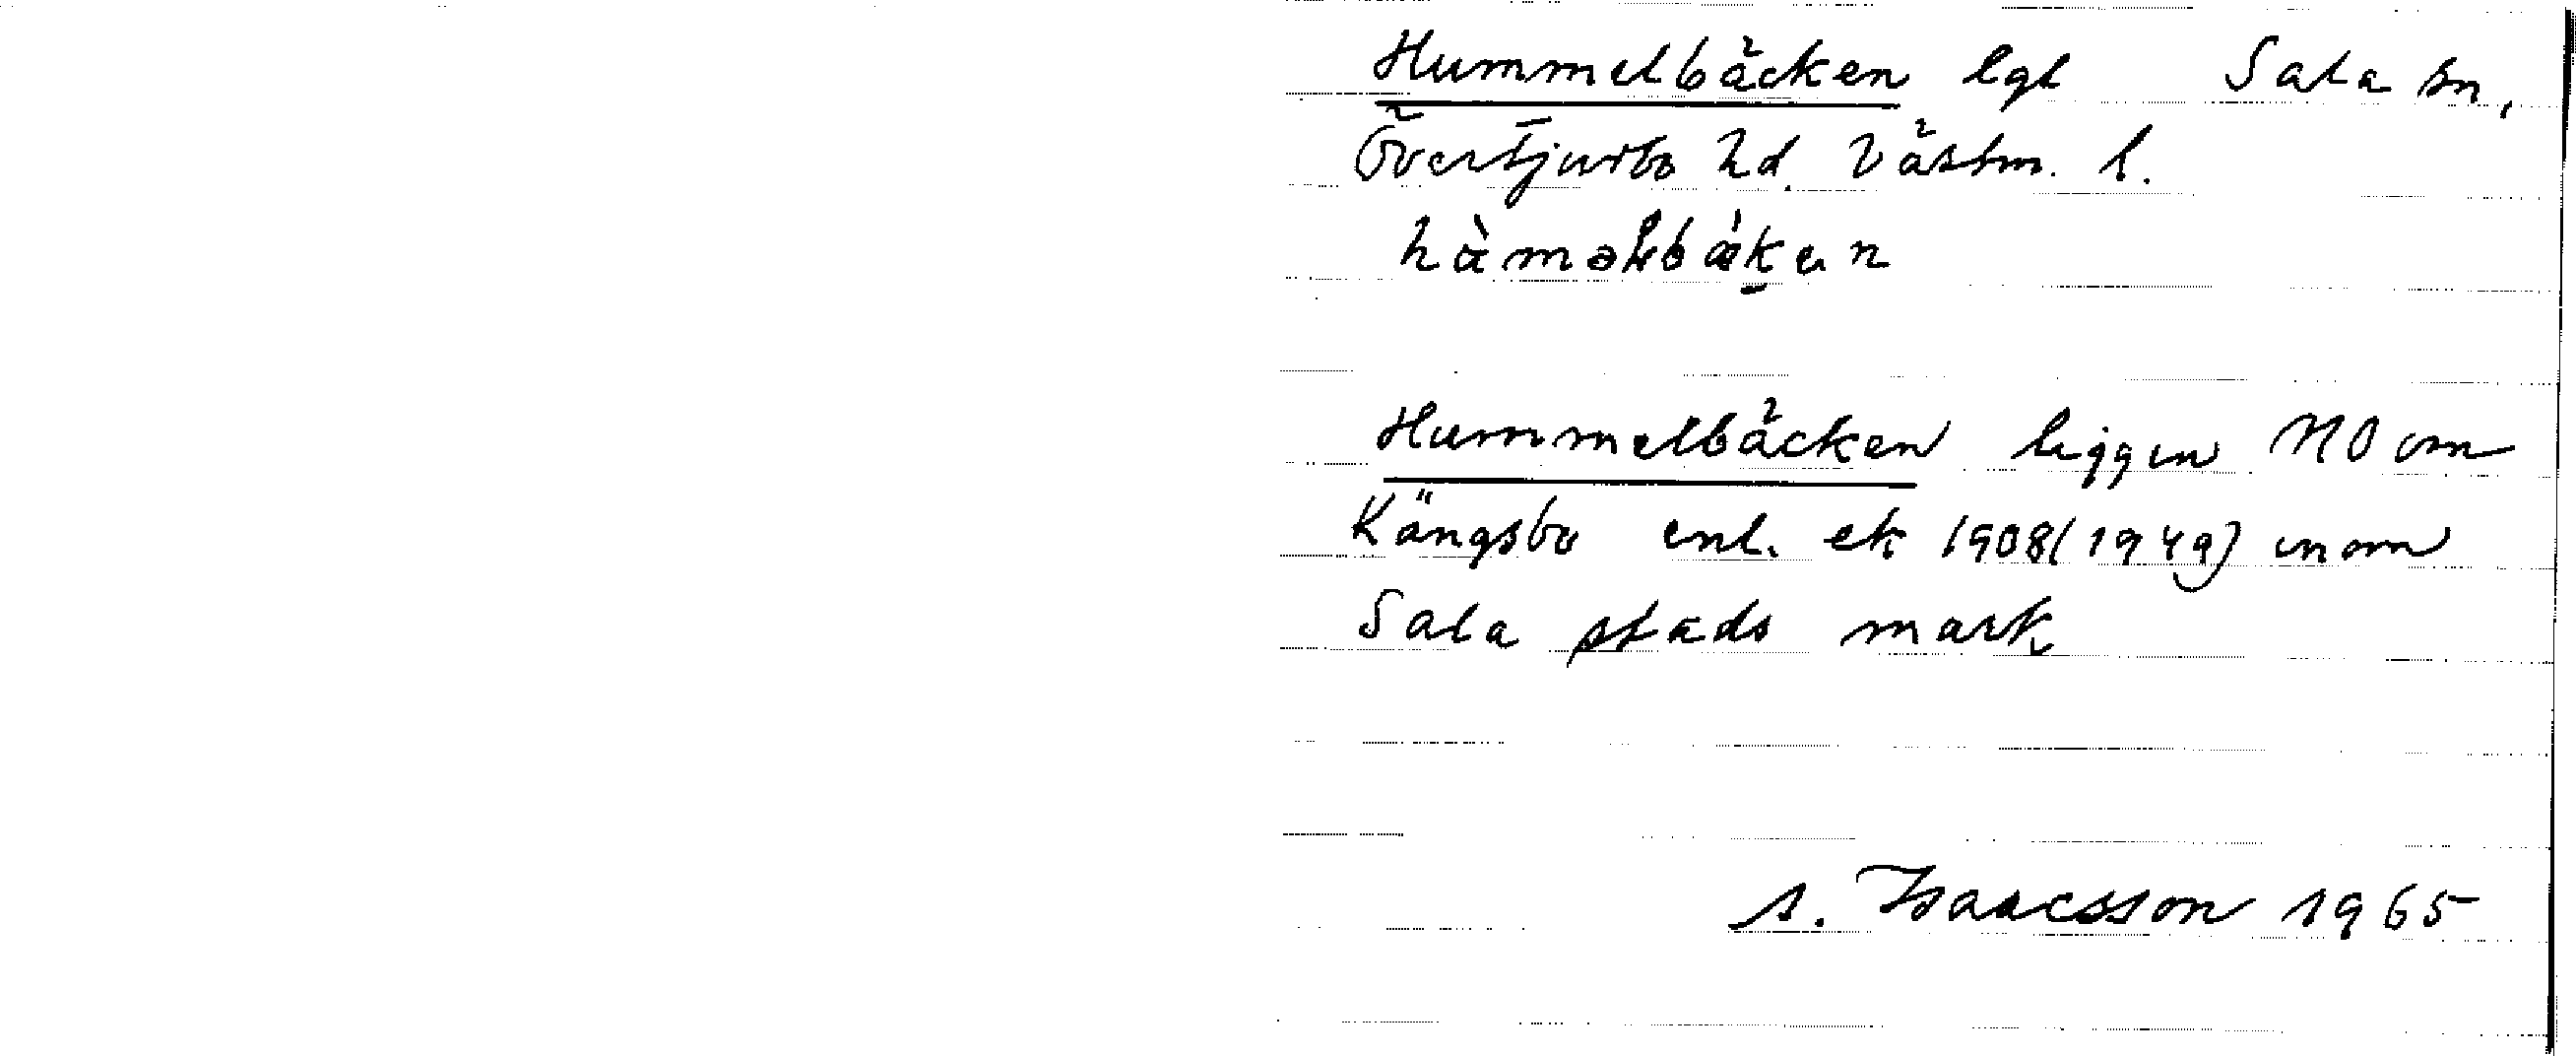 Hummelbäcken lgt Sala sn,
Övertjurbo hd. Västm. l.
Hummelbäcken ligger NO om
Kängsbo enl. ek 1908(1949) inom
Sala stads mark
S. Isaacsson 1965